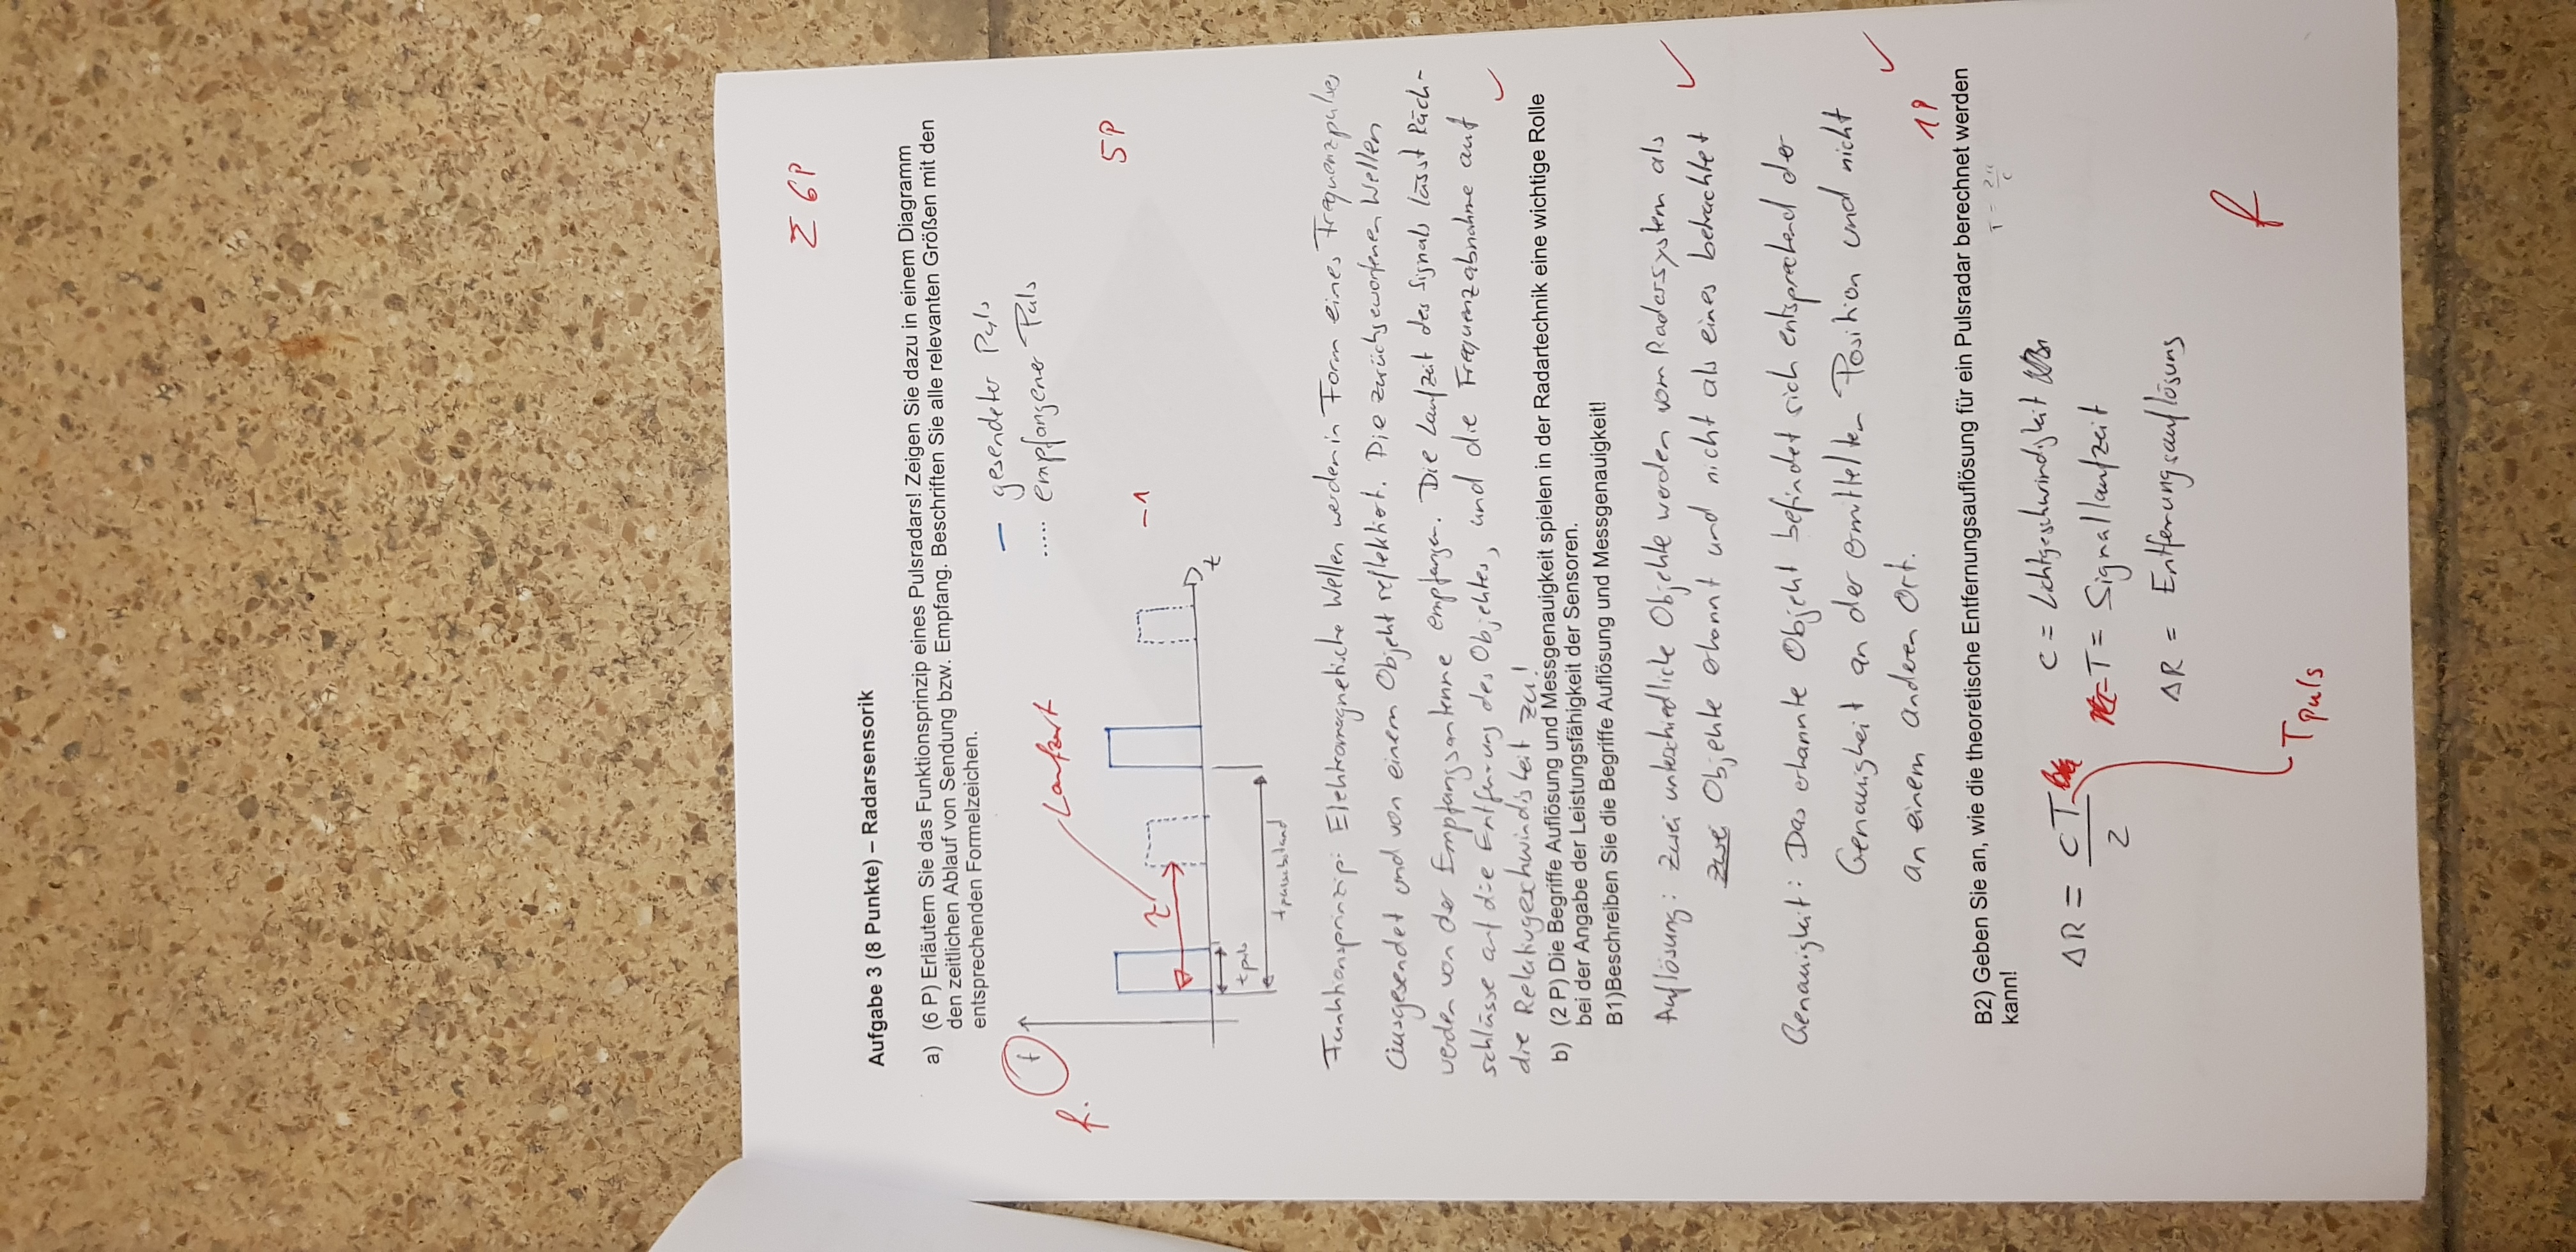 Σ 6P
Aufgabe 3 (8 Punkte) – Radarsensorik
a) (6 P) Erläutern Sie das Funktionsprinzip eines Pulsradars! Zeigen Sie dazu in einem Diagramm
den zeitlichen Ablauf von Sendung bzw. Empfang. Beschriften Sie alle relevanten Größen mit den
entsprechenden Formelzeichen.
— gesendeter Puls
..... empfangener Puls
f
f.
Laufzeit
5P
τ
-1
t
t puls
t pulsabstand
Funktionsprinzip: Elektromagnetische Wellen werden in Form eines Frequenzpulses
ausgesendet und von einem Objekt reflektiert. Die zurückgeworfenen Wellen
werden von der Empfangsantenne empfangen. Die Laufzeit des Signals lässt Rück-
schlüsse auf die Entfernung des Objektes, und die Frequenzabnahme auf
die Relativgeschwindigkeit zu!
b) (2 P) Die Begriffe Auflösung und Messgenauigkeit spielen in der Radartechnik eine wichtige Rolle
bei der Angabe der Leistungsfähigkeit der Sensoren.
B1)Beschreiben Sie die Begriffe Auflösung und Messgenauigkeit!
Auflösung: Zwei unterschiedliche Objekte werden vom Radarsystem als
zwei Objekte erkannt und nicht als eines betrachtet
Genauigkeit: Das erkannte Objekt befindet sich entsprechend der
Genauigkeit an der ermittelten Position und nicht
an einem anderen Ort.
1P
B2) Geben Sie an, wie die theoretische Entfernungsauflösung für ein Pulsradar berechnet werden
kann!
ΔR = cT/2
c = Lichtgeschwindigkeit
T = Signallaufzeit
ΔR = Entfernungsauflösung
f
T puls